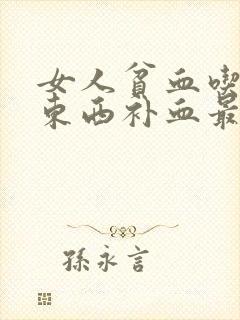 女人贫血喫
东西补血最
孫永言